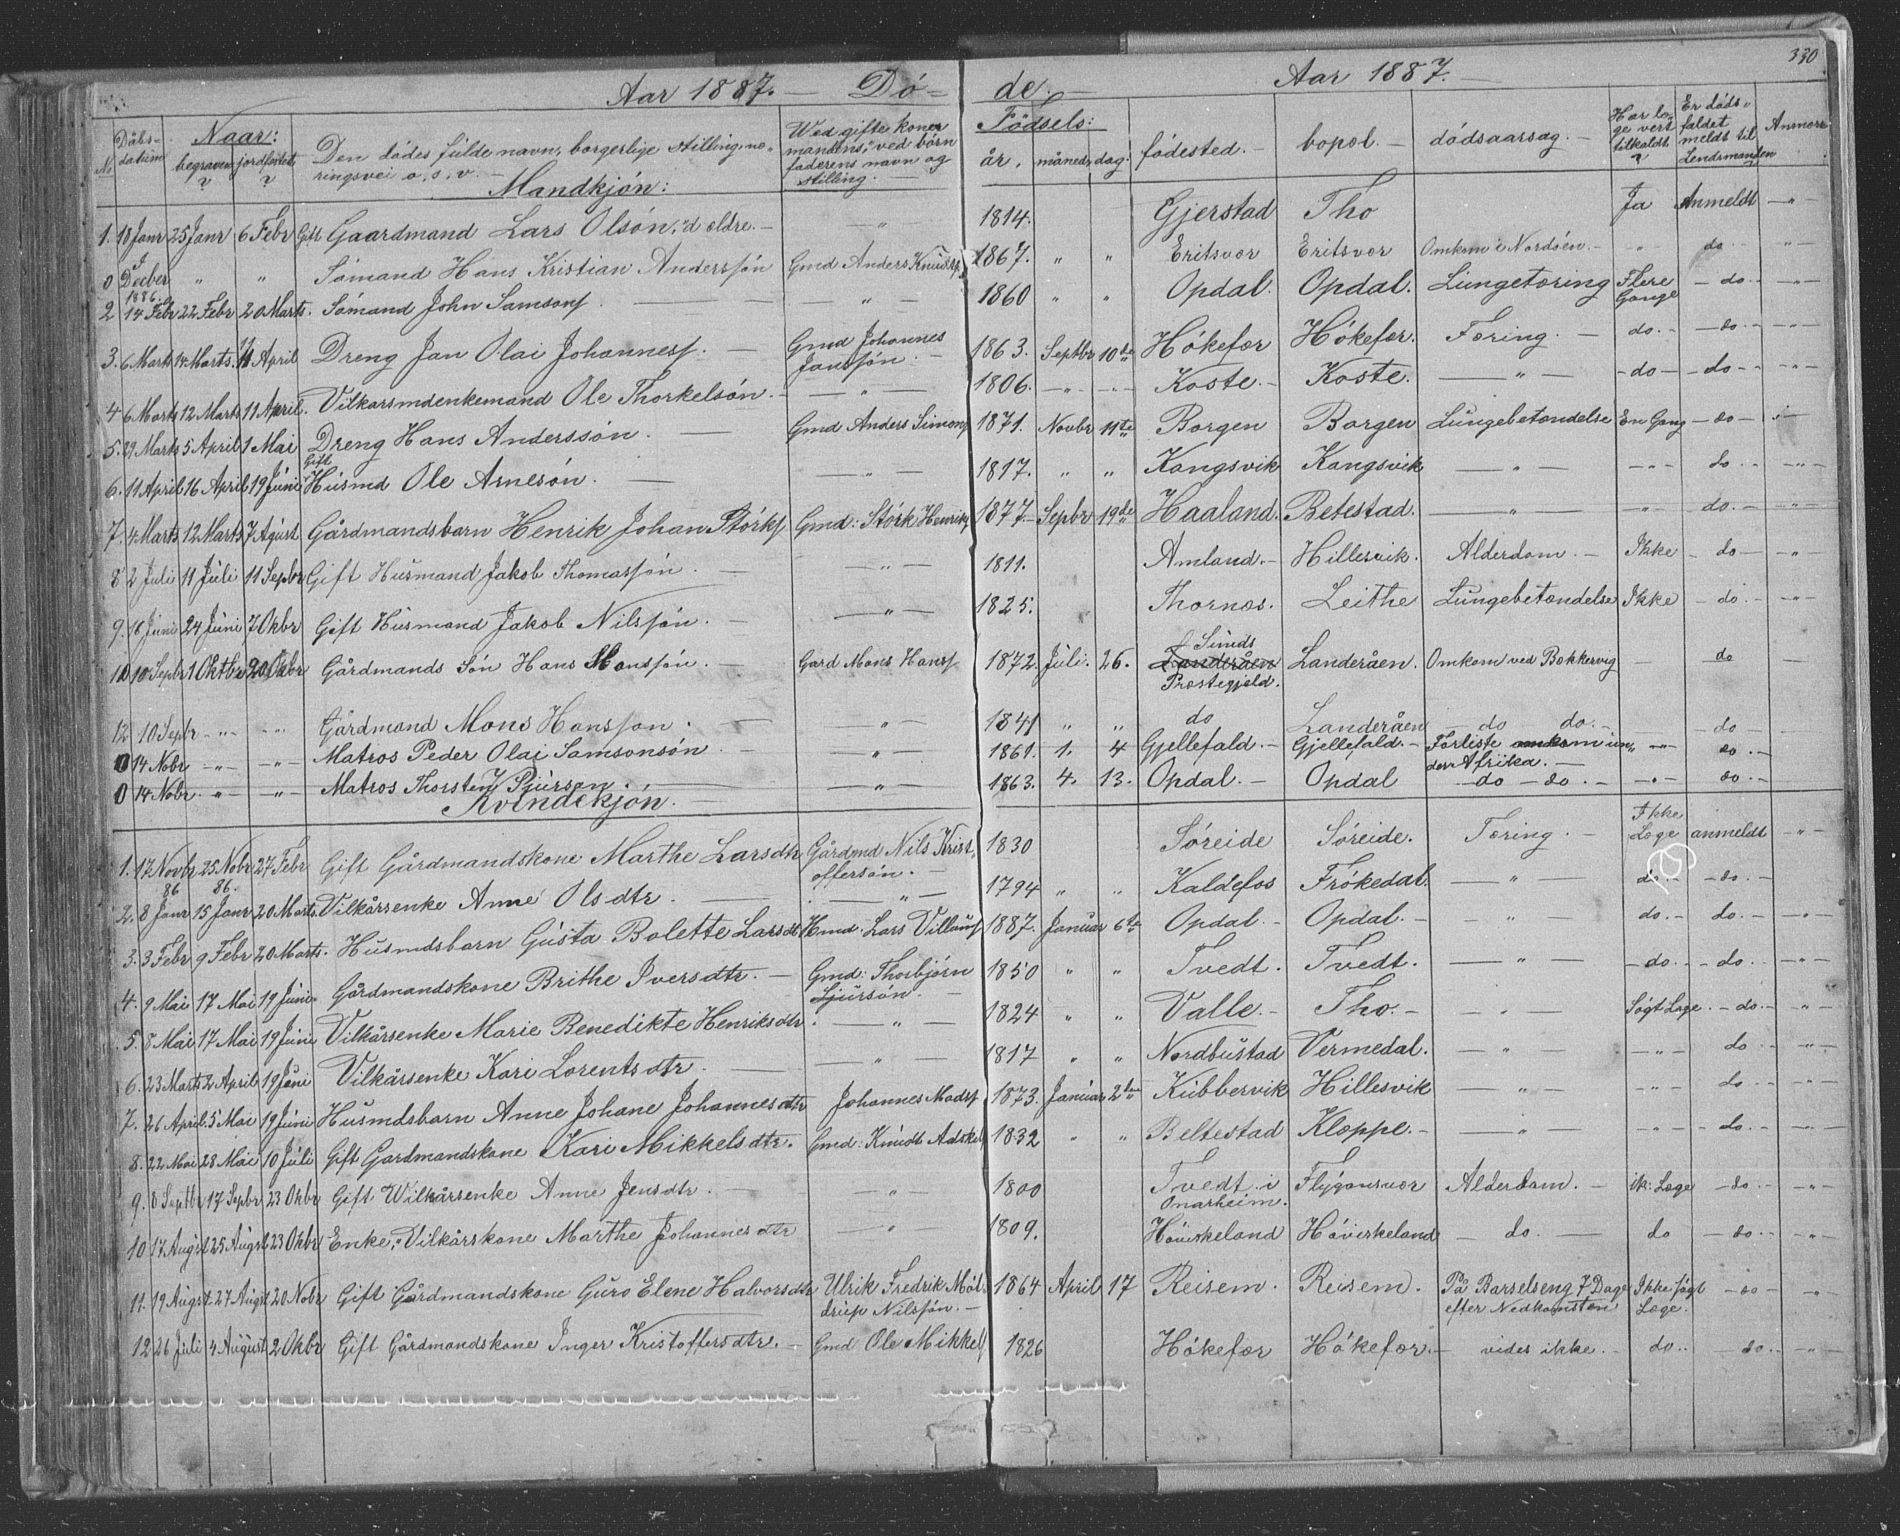 330
Aar 1887. — Dö = de. — Aar 1887. —
No Dåbs-datum. Naar: begraven? jordfæstet? Den dødes fulde navn, borgerlige stilling, næringsvei o.s.v. — Ved gifte koner mandens, ved börn faderens navn og stilling. — Födsels: år. måned, dag. födested. — bopæl. — dödsaarsag. — Har læge vært tilkaldt? Er dödsfaldet meldt til Lendsmanden Anmærk
Mandkjön:
1. 18 Janr 25 Janr 6 Febr Gift Gaardmand Lars Olsön, "d ældre. — — " — 1814. Gjerstad Tho Ja Anmeldt — " —
0 Decber 1886. " " Sömand Hans Kristian Anderssön Gmd Anders Knuds 1867. " " Eritsvor Eritsvor Omkom i Nordsöen. — — " — do. — " —
2 14 Febr 22 Febr 20 Marts. Sömand John Samsons. — " — 1860 " " Opdal. Opdal. Lungetæring Flere Gange — do. — — " —
3. 6 Marts 14 Marts. 11 April Dreng Jan Olai Johanness. — Gmd Johannes Janssön. — 1863. Septbr 10de Hökefær Hökefær. Tæring. — do. — — do. — — " —
4 6 Marts 12 Marts 11 April. Vilkarsmdenkemand Ole Thorkelsön. — — " — 1806. — " — — Koste. — Koste. — " — — do — — do. — — " —
5. 29 Marts 5 April 1 Mai Dreng Hans Anderssön. — Gmd Anders Simons 1871. Novbr 11te Borgen Borgen Lungebetændelse En Gang — do — — " —
6. 11 April 16 April 19 Juni Gift Husmd Ole Arnesön. — — " — 1817. " " Kangsvik Kangsvik — " — — " — do. — — " —
7. 4 Marts 12 Marts 7 Agust Gårdmandsbarn Henrik Johan Störks Gmd: Störk Henriks 1877. Sepbr 19de Haaland. Betestad. — " — " do. — — " —
8 2 Juli 11 Juli 11 Sepbr Gift Husmand Jakob Thomassön. — — " — 1811. Amland. — Hillesvik. Alderdom. — Ikke — do — — " —
9. 16 Juni 24 Juni 7 Okbr Gift Husmand Jakob Nilssön. — — " — 1825. Thornæs. Leithe Lungebetændelse Ikke — do. — — " —
10 10 Sepbr 1 Oktbr 20 Okbr Gårdmands Sön Hans Monssön. — Gard Mons Hans 1872. Juli. 26. Sunds Præstegjæld. Landeråen. Omkom ved Bakkervig — do —
12 10 Sepbr — " — — " — Gårdmand Mons Hansson. — — " — 1841 " " do Landeråen — do do. — — do
0 14 Nobr — " — — " — Matros Peder Olai Samsonsön. — — " — 1861. 1. 4 Gjellefald. — Gjellefald. — Forliste under Afrika. — — " — do. —
0 14 Nobr. — " — — " — Matros Thorsten Pjursen. — — " — 1863. 4. 13. Opdal. — Opdal — do — do. — — " — do. —
Kvindekjön. —
1. 17 Novbr 86 25 Nobr 86. 27 Febr Gift Gårdmandskone Marthe Larsdtr Gårdmd Nils Kristoffersön. — 1830 Söreide Söreide. Tæring. — Ikke Læge anmeldt — " —
2. 8 Janr 15 Janr 20 Marts. Vilkårsenke Anne Olsdtr. — — " — 1794 " " Kaldefos Frökedal. — " — do — — do. —
3. 3 Febr 9 Febr 20 Marts. Husmdsbarn Gusta Bolette Larsdtr Hmd. Lars Villaus 1887. Januar 6te Opdal. — Opdal. — — " — do. — do. — — " —
4. 9 Mai 17 Mai 19 Juni. Gårdmandskone Brithe Iversdtr. — Gmd: Thorbjörn Sjursön. — 1850 " " Tvedt. Tvedt. — " — — do. — — do. — — " —
5. 8 Mai 17 Mai 19 Juni Vilkårsenke Marie Benedikte Henriksdtr. — " — 1824 " " Valle. — Tho. — — " — Sögt Læge. — do. — — " —
6. 23 Marts 2 April 19 Juni Vilkårsenke Kari Lorentsdtr. — — " — 1817 " " Nordbustad Vermedal. — " — — " — do — — " —
7. 26 April. 5 Mai 19 Juni Husmdsbarn Anne Johane Johannesdtr Johannes Mads 1873. Januar 2den Kubbervik Hillesvik — " — — " — do. — — " —
8. 22 Mai 28 Mai 10 Juli Gift Gardmandskone Kari Mikkelsdtr. Gmd: Knudt Adskel 1832 " " Beltestad Kloppe. — — " — — " — do. — — " —
9. 8 Septbr 17 Sepbr 23 Okbr Gift Wilkårsenke Anne Jensdtr. — — " — 1800 Tvedt i Onarheim. Flygansvær Alderdom. — ik: Læge — do — — " —
10 17 Augst 25 Augst 23 Okbr Enke, "Vilkårskone Marthe Johannesdtr — " — 1809. Håviskeland Håviskeland — do. — do — do — — " —
11. 19 Augst 27 Augst 20 Nobr Gift Gårdmandskone Guro Elene Halvorsdtr Ulrik Fredrik Möldrup Nilssön. — 1864 April 17 Reisem. Reisem. På Barselseng 7 Dage efter Nedkomsten Ikke sögt Læge. — do — — " —
12 26 Juli 4 August 2 Okbr Gift Gårdmandskone Inger Kristoffersdtr. — Gmd Ole Mikkels 1826 Hökefær Hökefær. — vides ikke. — do. — — do. — — " —